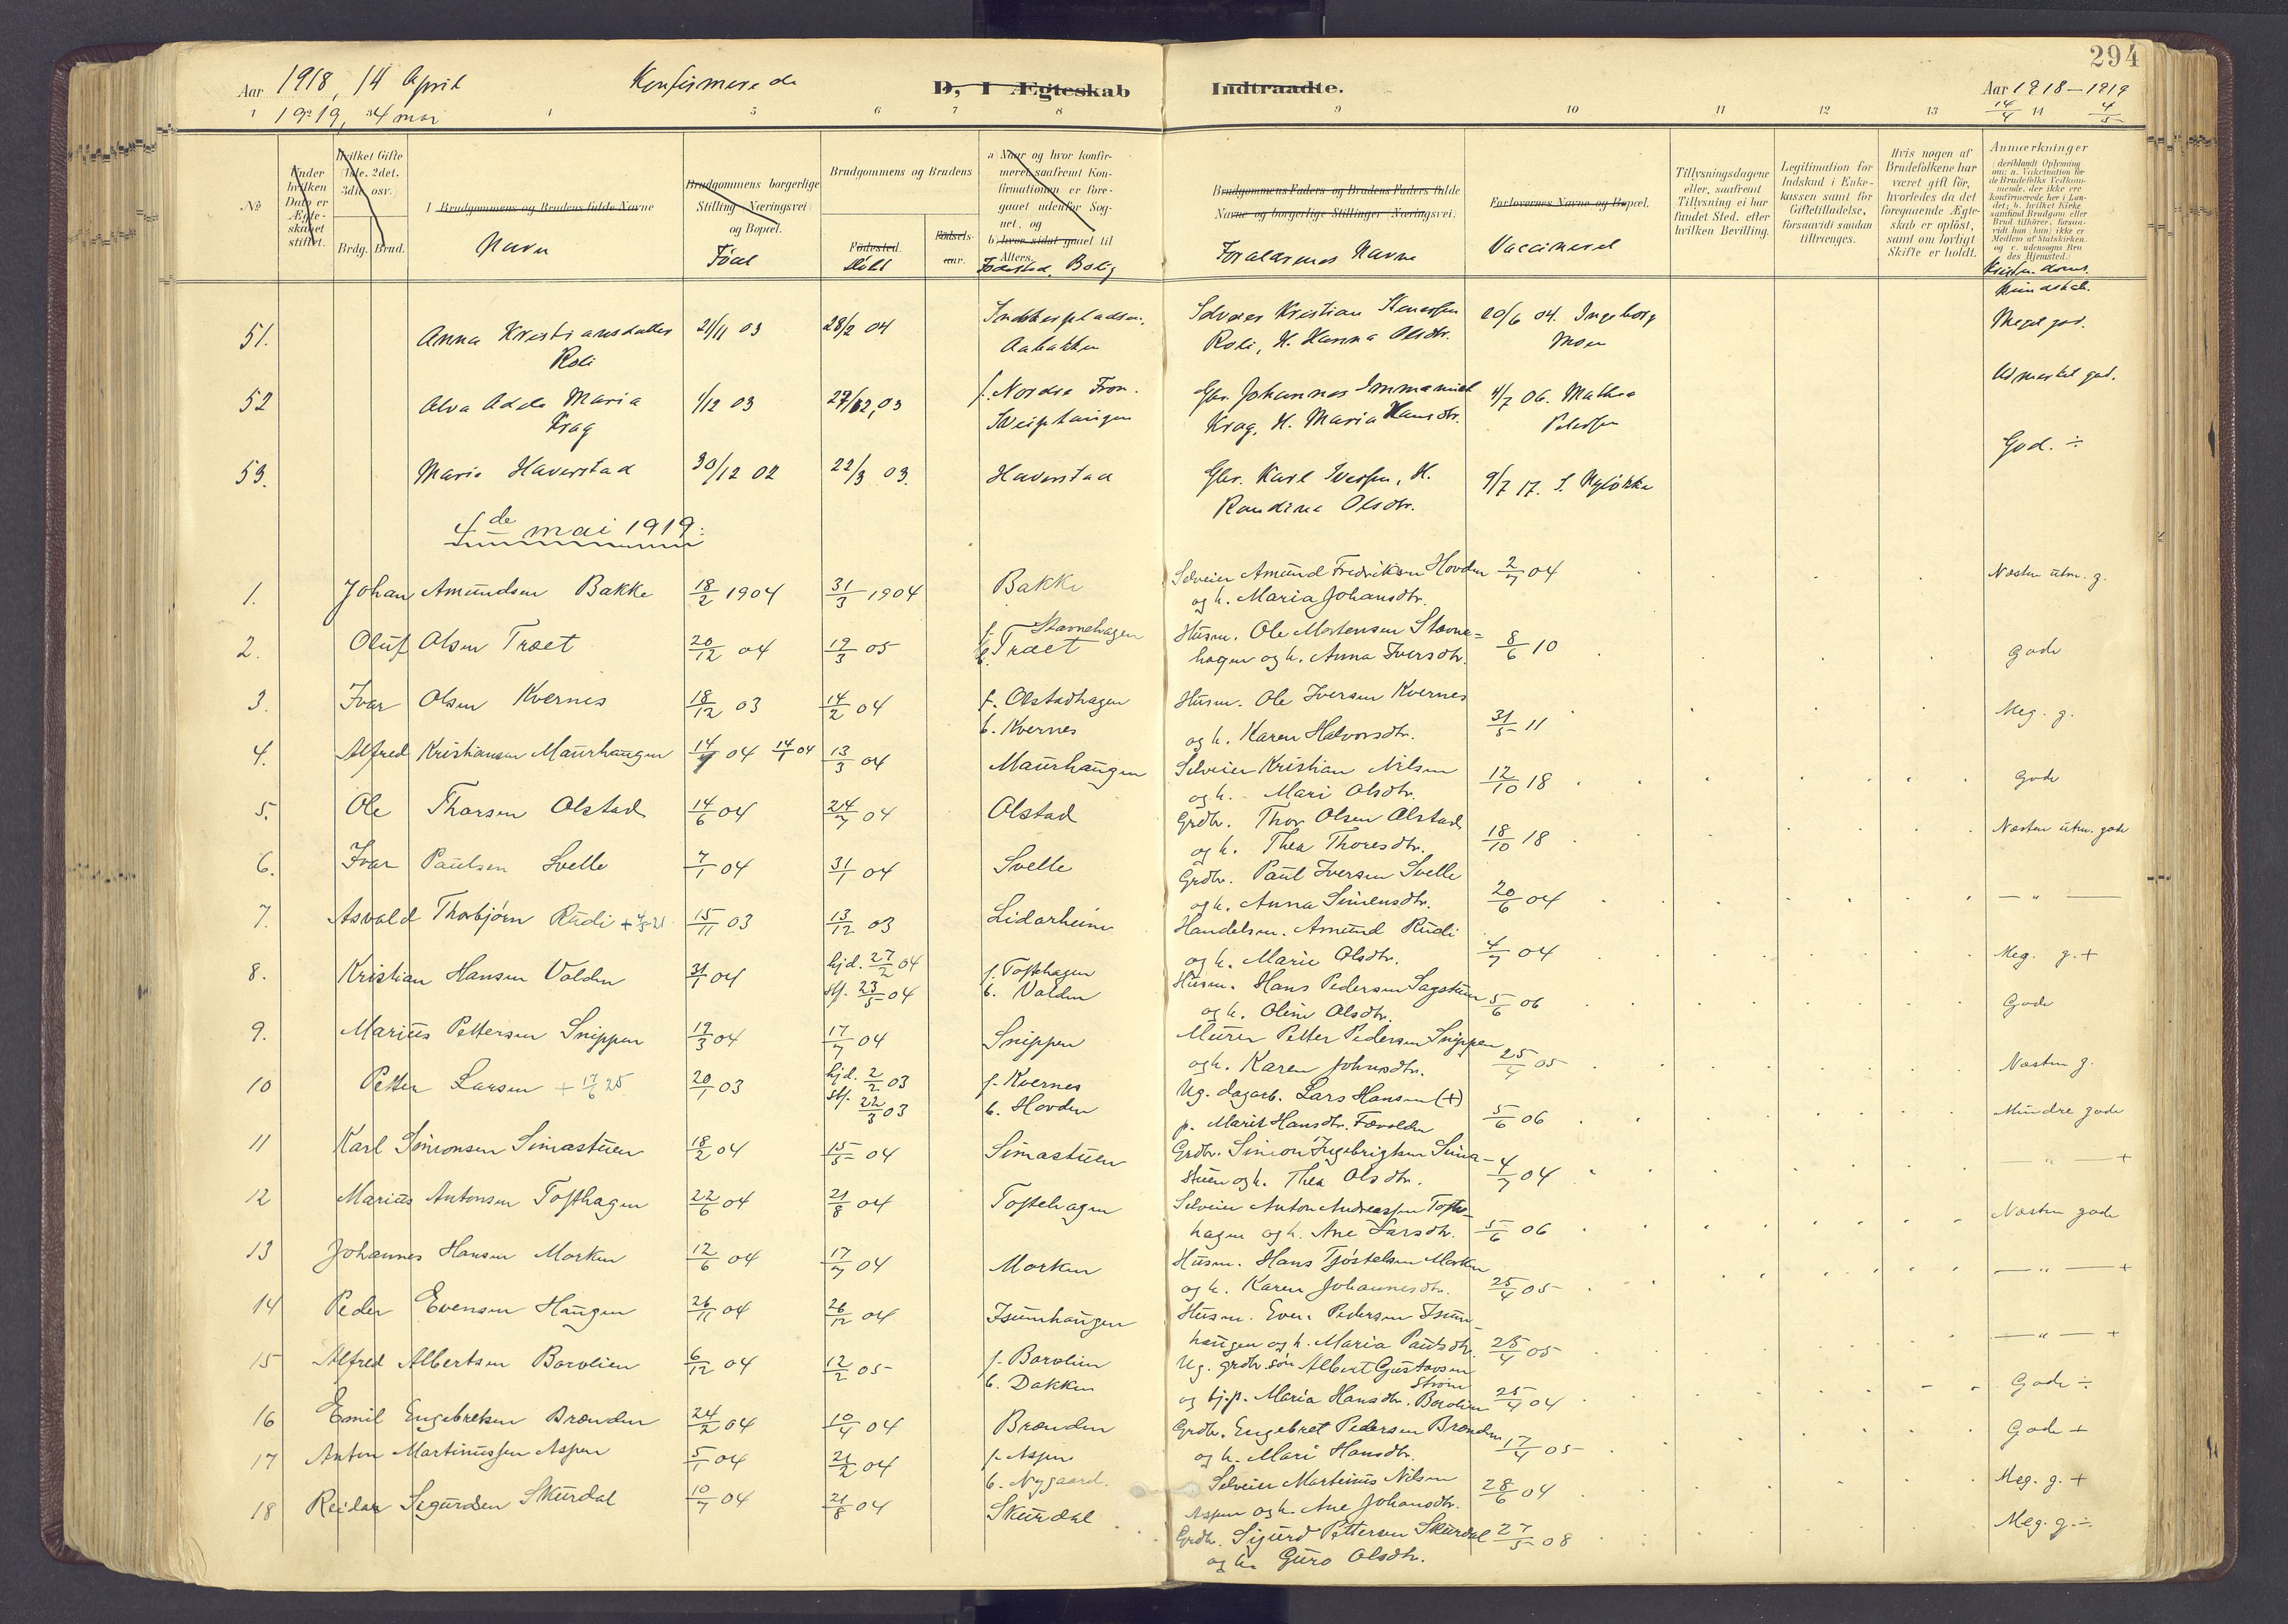 294
Aar 1918, 14 April Konfirmerede D, I Ægteskab Indtraadte. Aar 1918-1919
1919, 4 mai 14/4 4/5
1 4 5 6 7 8 9 10 11 12 13 14
No
Under hvilken Dato er Ægteskabet stiftet.
Hvilket Gifte (1ste, 2det, 3die osv.)
Brdg. Brud.
Brudgommens og Brudens fulde Navne
Navn
Brudgommens borgerlige Stilling (Næringsvei) og Bopæl.
Født
Brudgommens og Brudens
Fødested.
Døbt
Fødselsaar.
a) Naar og hvor konfirmeret, saafremt Konfirmationen er foregaaet udenfor Sognet, og
b) hvor sidst gaaet til Alters.
Fødested, Bolig
Brudgommens Faders og Brudens Faders fulde Navne og borgerlige Stillinger (Næringsvei).
Forældrenes Navne
Forlovernes Navne og Bopæl.
Vaccineret
Tillysningsdagene eller, saafremt Tillysning ei har fundet Sted, efter hvilken Bevilling.
Legitimation for Indskud i Enkekassen samt for Giftetilladelse, forsaavidt saadan tiltrænges.
Hvis nogen af Brudefolkene har været gift før, hvorledes da det foregaaende Ægteskab er opløst, samt om lovligt Skifte er holdt.
Anmerkninger
(deriblandt Oplysning om: a. Vakcination for de Brudefolks Vedkommende, der ikke ere konfirmerede her i Landet; b. hvilket Kirkesamfund Brudgom eller Brud tilhører, forsaavidt han (hun) ikke er Medlem af Statskirken, og c. udensogns Brudes Hjemsted.)
Kristendoms kundskab.
51. Anna Kristiansdatter 21/11 03 28/2 04 Selveier Kristian 20/6 04. Ingeborg Meget god.
Roli Aabakken Roli, H. Hanna Olsdtr. Moen
52 Alva Adda Maria 1/12 03 27/12, 03 f. Nordre Fron. Gbr. Johannes Immanuel 4/7 06. Mathea Udmerket god.
Krag Krag, H. Maria Hansdtr.
53. Marie Haverstad 30/12 02 22/3 03. Haverstad Gbr. Karl Iversen, H. 9/7 17. S. Nyløkke God. ÷
Randine Olsdtr.
4de mai 1919:
1. Johan Amundsen Bakke 18/2 1904 31/3 1904 Bakke Selveier Amund Fredriksen Hovden 2/7 04 Næsten utm. g.
og h. Maria Johansdtr.
2. Oluf Olsen Træet 20/12 04 19/3 05 f. Stavnehagen Husm. Ole Mortensen Stavne= 8/6 10 gode
b. Træet hagen og h. Anna Iversdtr.
3. Ivar Olsen Kvernes 18/12 03 14/2 04 f. Olstadhagen Husm. Ole Iversen Kvernes 31/5 11 Meg. g.
b. Kvernes og h. Karen Halvorsdtr.
4. Alfred Kristiansen Maurhaugen 04 14/1 04 13/3 04 Maurhaugen Selveier Kristian Nilsen 12/10 18 Gode
og h. Mari Olsdtr.
5. Ole Thorsen Olstad 14/6 04 24/7 04 Olstad Grdbr. Thor Olsen Olstad 18/10 18 Næsten utm. gode
og h. Thea Thoresdtr.
6. Ivar Paulsen Svelle 7/1 04 31/1 04 Svelle Grdbr. Paul Iversen Svelle 20/6 04 — " —
og h. Anna Simensdtr.
7. Asvald Thorbjørn Rudi + 4/5 21 15/11 03 13/12 03 Lidarheim Handelsm. Amund Rudi 4/7 04 Meg. g. +
og h. Marie Olsdtr.
8. Kristian Hansen Volden 31/1 04 hjd. 27/2 04 f. Toftehagen Husm. Hans Pedersen Sagstuen 5/6 06 Gode
stf. 23/5 04 b. Volden og h. Oline Olsdtr.
9. Marius Pettersen Snippen 19/3 04 17/7 04 Snippen Murer Petter Pedersen Snippen 25/4 05 Næsten g.
og h. Karen Johnsdtr.
10 Petter Larsen + 17/6 25 20/1 03 hjd. 2/2 03 f. Kvernes Ug. dagarb. Lars Hansen (+) 5/6 06 Mindre gode
stf. 22/3 03 b. Hovden p. Marit Hansdtr.
11 Karl Simonsen Simastuen 18/2 04 15/5 04 Simastuen Grdbr. Simon Ingebrigtsen Sima- 4/7 04 — " — +
stuen og h. Thea Olsdtr.
12 Marius Antonsen Tofthagen 22/6 04 21/8 04 Toftehagen Selveier Anton Andreassen Tofte- 5/6 06 Næsten gode
hagen og h. Ane Larsdtr.
13 Johannes Hansen Morken 12/6 04 17/7 04 Morken Husm. Hans Tjøstelsen Morken 25/4 05 — " — +
og h. Karen Johannesdtr.
14 Peder Evensen Haugen 26/11 04 26/12 04 Isumhaugen Husm. Even Pedersen Isum- 25/4 05 — " — +
haugen og h. Maria Paulsdtr.
15 Alfred Albertsen Borolien 6/12 04 12/2 05 f. Borolien Ug. grdbr.søn Albert Gustavsen Strøm 25/4 04 Gode ÷
b. Bakken og tj.p. Maria Hansdtr. Borolien
16 Emil Engebretsen Brænden 24/2 04 10/4 04 Brænden Grdbr. Engebret Pedersen Brænden 17/4 05 Gode +
og h. Mari Hansdtr.
17 Anton Martinussen Aspen 5/1 04 21/2 04 f. Aspen Selveier Martinus Nilsen 28/6 04 Meg. g. +
b. Nygaard. Aspen og h. Ane Johansdtr.
18 Reidar Sigurdsen Skurdal 10/7 04 21/8 04 Skurdal Grdbr. Sigurd Pettersen Skurdal 27/5 08 Meg. g. ÷
og h. Guro Olsdtr.